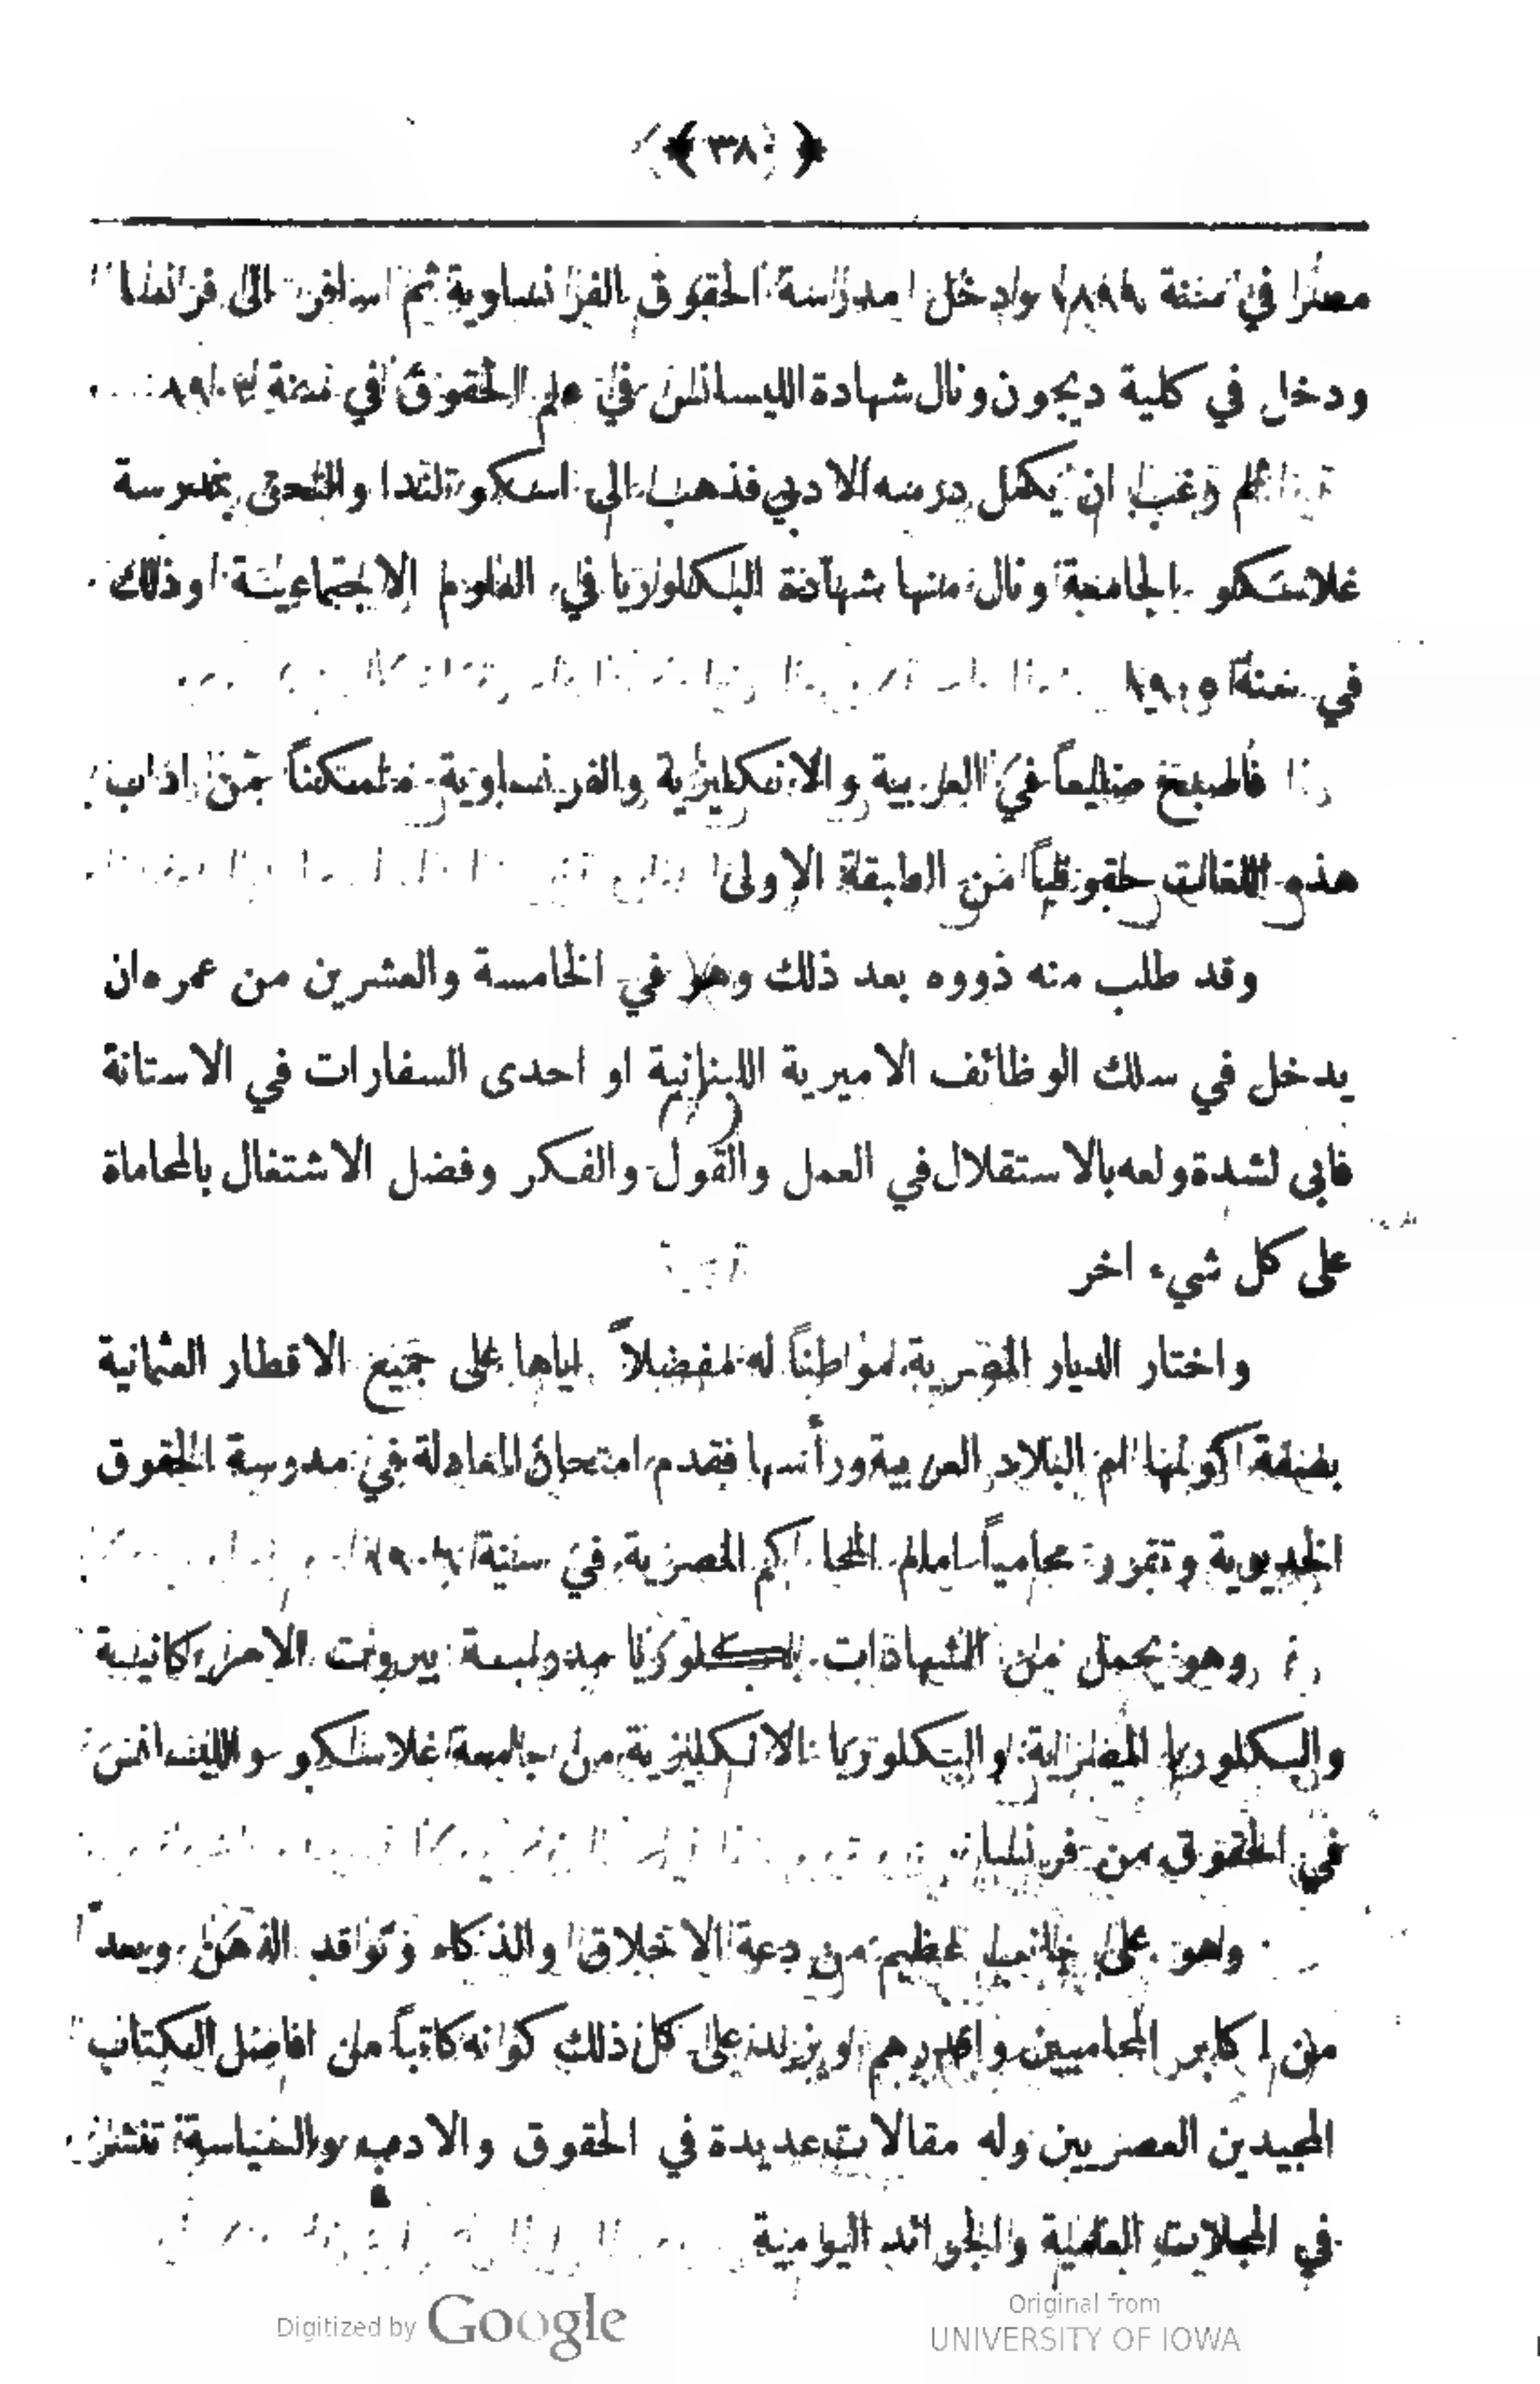 ﴿ ٣٨ ﴾
مصر في سنة ١٨٩٩ ودخل مدرسة الحقوق الفرنساوية ثم سافر الى فرنسا
ودخل في كلية ديجون ونال شهادة الليسانس في علم الحقوق في سنة
ثم رغب ان يكمل درسه الادبي فذهب الى اسكوتلندا والتحق بمدرسة
غلاسكو الجامعة ونال منها شهادة البكلوريا في العلوم الاجتماعية وذلك
في سنة ١٩٠٥
فاصبح ضليعاً في العربية والانكليزية والفرنساوية متمكناً من اداب
هذه اللغات حقوقياً من الطبقة الاولى
وقد طلب منه ذووه بعد ذلك وهو في الخامسة والعشرين من عمره ان
يدخل في سلك الوظائف الاميرية اللبنانية او احدى السفارات في الاستانة
فابى لشدة ولعه بالاستقلال في العمل والقول والفكر وفضل الاشتغال بالمحاماة
على كل شيء اخر
واختار الديار المصرية موطناً له مفضلاً اياها على جميع الاقطار العثمانية
بصفة كونها ام البلاد العربية ورأسها فقدم امتحان المعادلة في مدرسة الحقوق
الخديوية وتقرر محامياً امام المحاكم المصرية في سنة ١٩٠٦
وهو يحمل من الشهادات بكلوريا مدرسة بيروت الاميركانية
والبكلوريا المصرية والبكلوريا الانكليزية من جامعة غلاسكو والليسانس
في الحقوق من فرنسا
وهو على جانب عظيم من دعة الاخلاق والذكاء وتواقد الذهن ويعد
من اكابر المحاميين واقدرهم ويزيد على كل ذلك كونه كاتباً من افاضل الكتاب
المجيدين العصريين وله مقالات عديدة في الحقوق والادب والسياسة تنشر
في المجلات العلمية والجرائد اليومية
Digitized by Google
Original from
UNIVERSITY OF IOWA